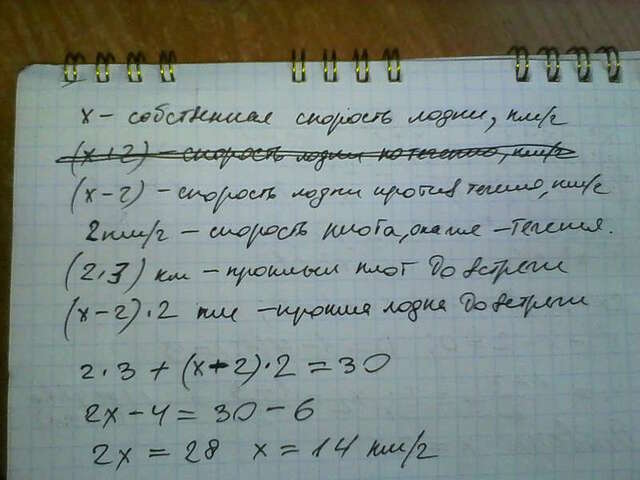 x – собственная скорость лодки, км/ч
(x+2) – скорость лодки по течению, км/ч
(x-2) – скорость лодки против течения, км/ч
2км/ч – скорость плота, она же – течения.
(2·3) км – проплыл плот до встречи
(x-2)·2 км – прошла лодка до встречи
2·3 + (x-2)·2 = 30
2x - 4 = 30 - 6
2x = 28 x = 14 км/ч